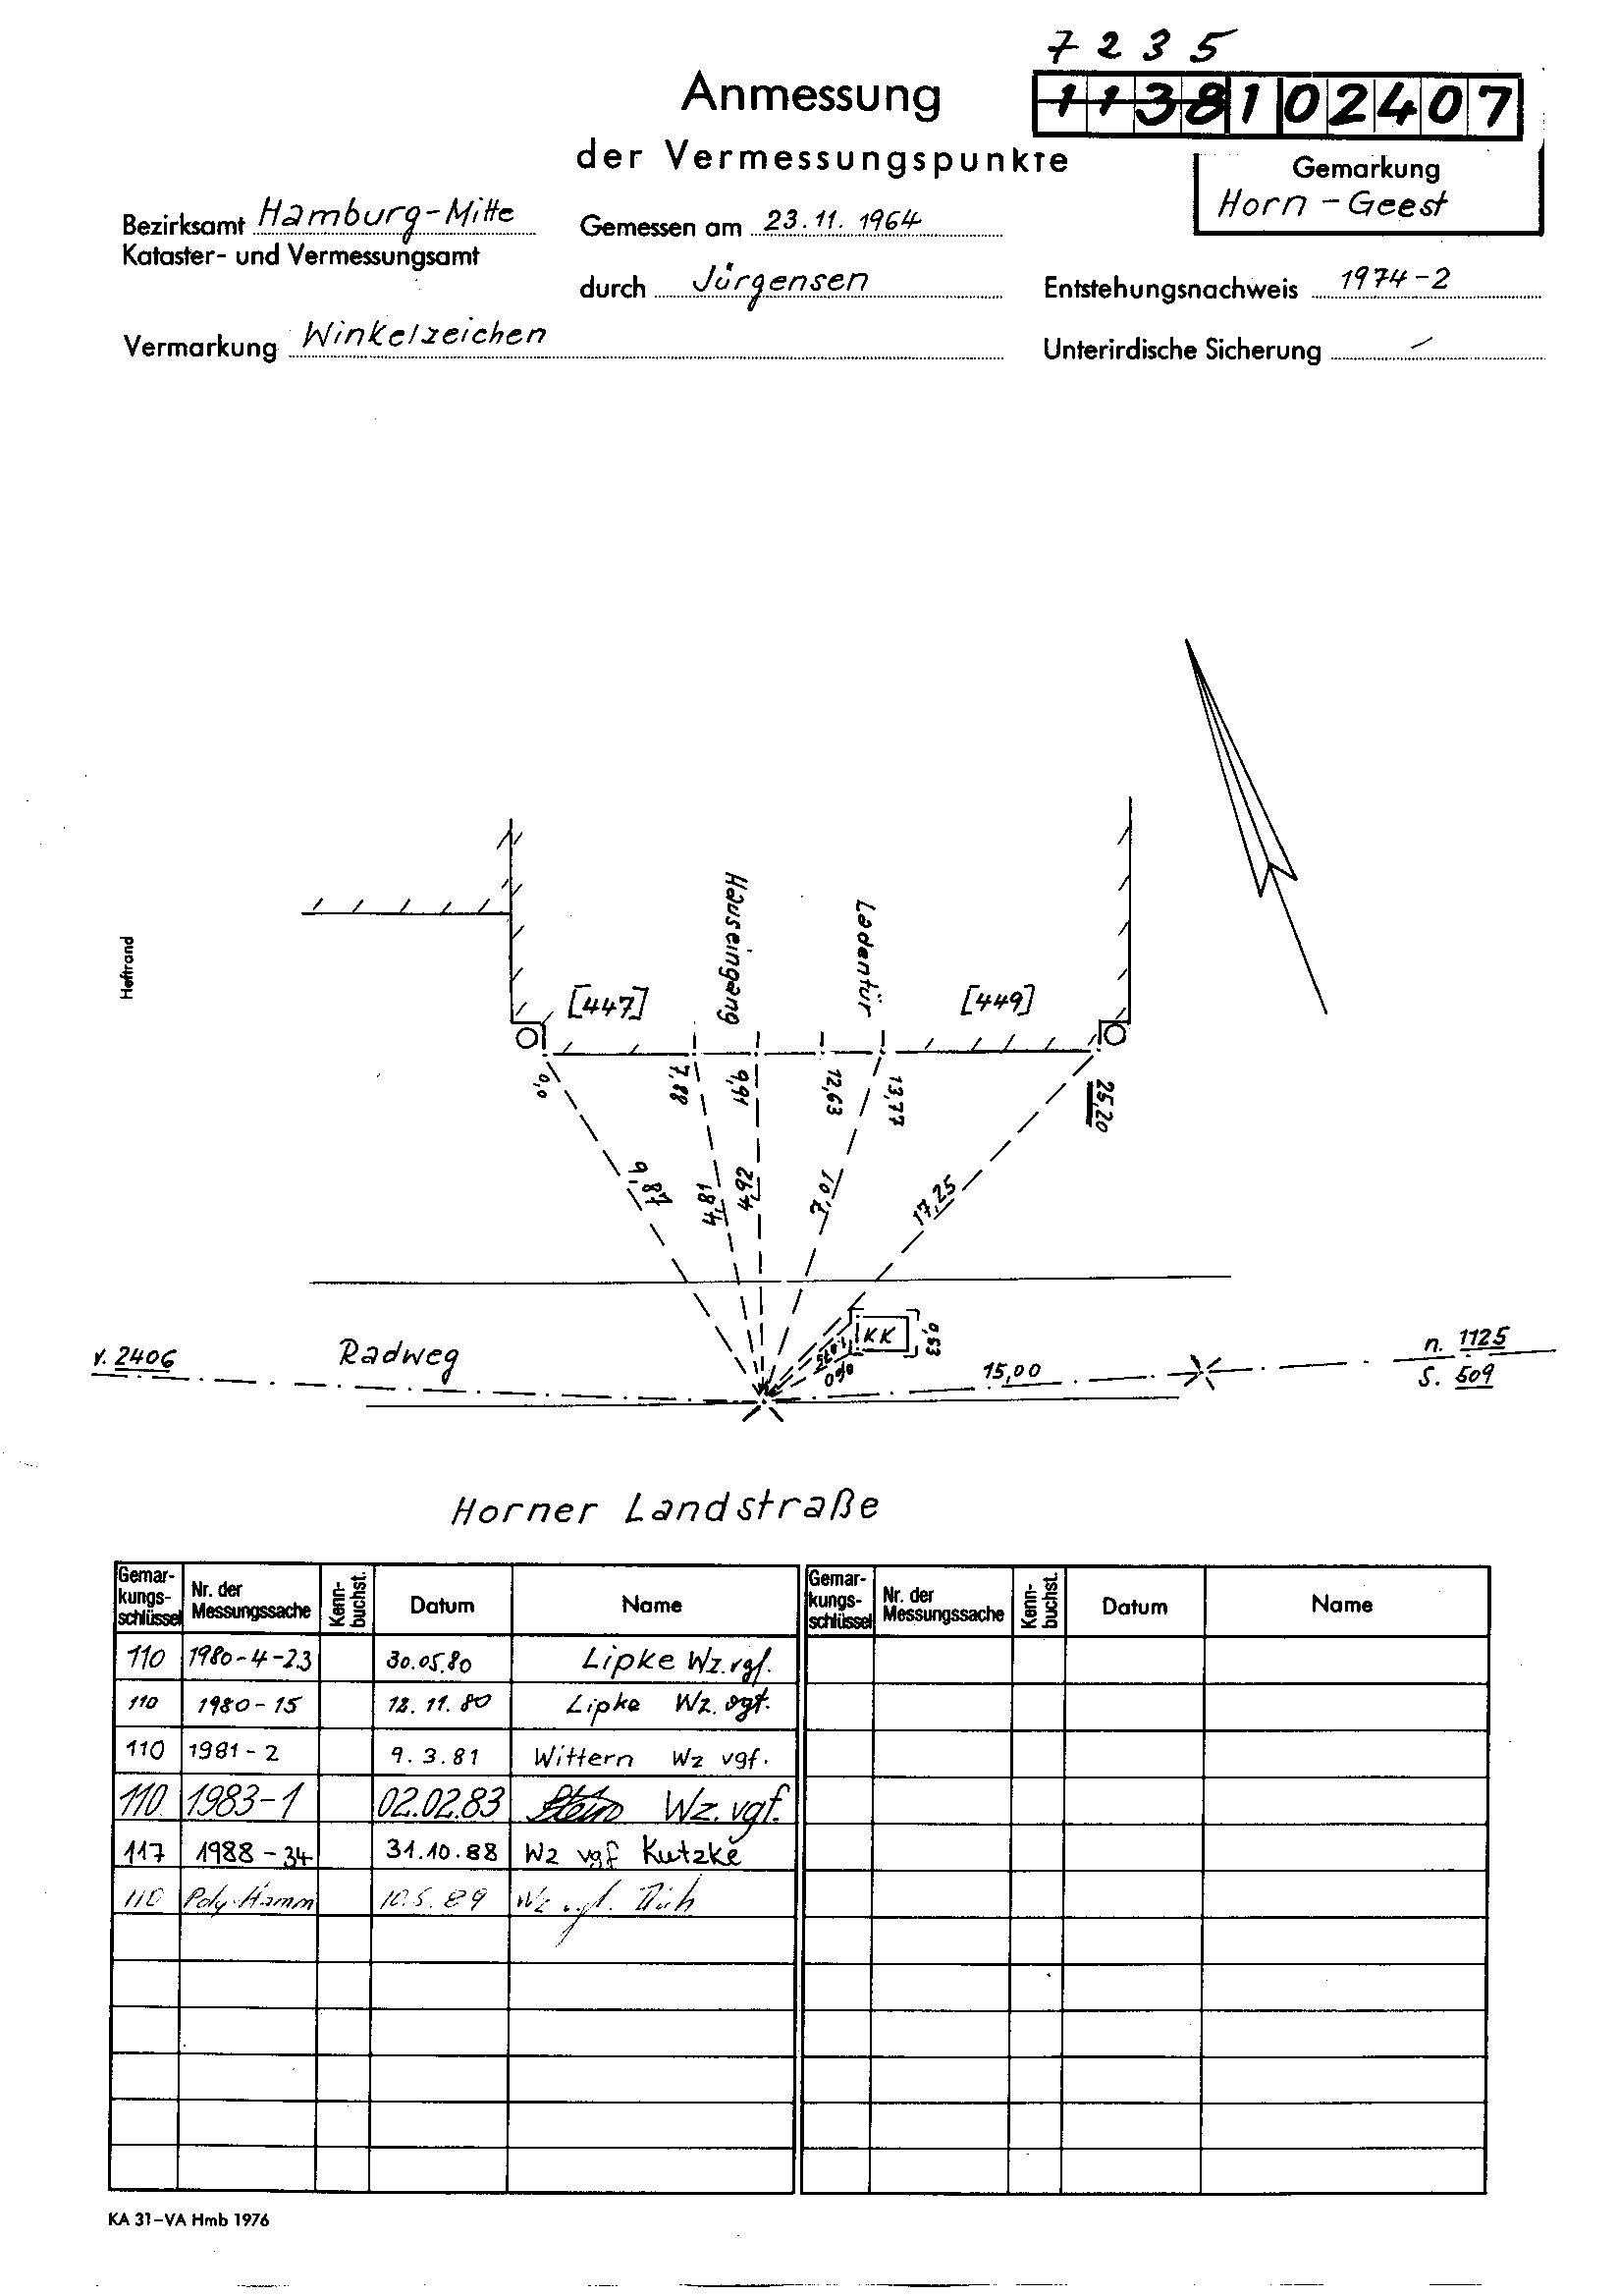 7 2 3 5
Anmessung
1138102407
der Vermessungspunkte
Gemarkung
Horn - Geest
Bezirksamt Hamburg-Mitte
Gemessen am 23.11.1964
Kataster- und Vermessungsamt
durch Jürgensen
Entstehungsnachweis 1974-2
Vermarkung Winkelzeichen
Unterirdische Sicherung -
Heftrand
Hauseingang
Ladentür
[447]
[449]
0,0
7,88
9,91
12,63
13,77
25,20
9,87
4,81
4,92
7,01
17,25
KK
0,53
0,90
15,00
v. 2406
Radweg
n. 1125
S. 509
Horner Landstraße
Gemar-
kungs-
schlüssel
Nr. der
Messungssache
Kenn-
buchst.
Datum
Name
Gemar-
kungs-
schlüssel
Nr. der
Messungssache
Kenn-
buchst.
Datum
Name
110 1980-4-23 30.05.80 Lipke Wz. vgf.
110 1980-15 12.11.80 Lipke Wz. vgf.
110 1981-2 9.3.81 Wittern Wz vgf.
110 1983-1 02.02.83 Stein Wz. vgf.
117 1988-34 31.10.88 Wz vgf Kutzke
110 Poly. Hamm 10.5.89 Wz vgf.
KA 31-VA Hmb 1976